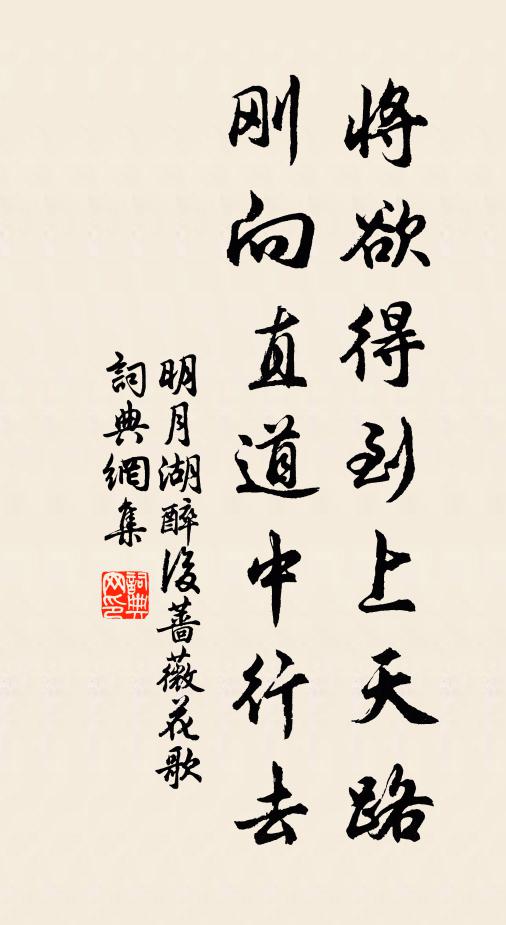 將欲得到上天路
刚向直道中行去
明月湖醉後薔薇花歌
詞典網集
詞典
网印